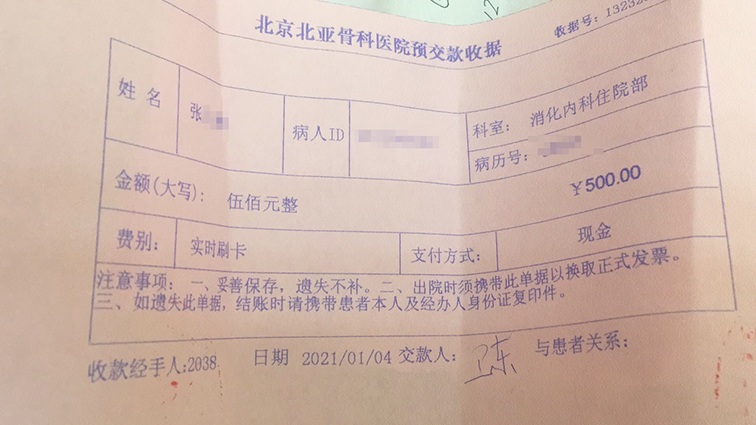 北京北亚骨科医院预交款收据
收据号:13232
姓名 张 病人ID 科室: 消化内科住院部
病历号:
金额(大写): 伍佰元整 ￥500.00
费别: 实时刷卡 支付方式: 现金
注意事项: 一、妥善保存，遗失不补。二、出院时须携带此单据以换取正式发票。
三、如遗失此单据，结账时请携带患者本人及经办人身份证复印件。
收款经手人:2038 日期 2021/01/04 交款人: 与患者关系: